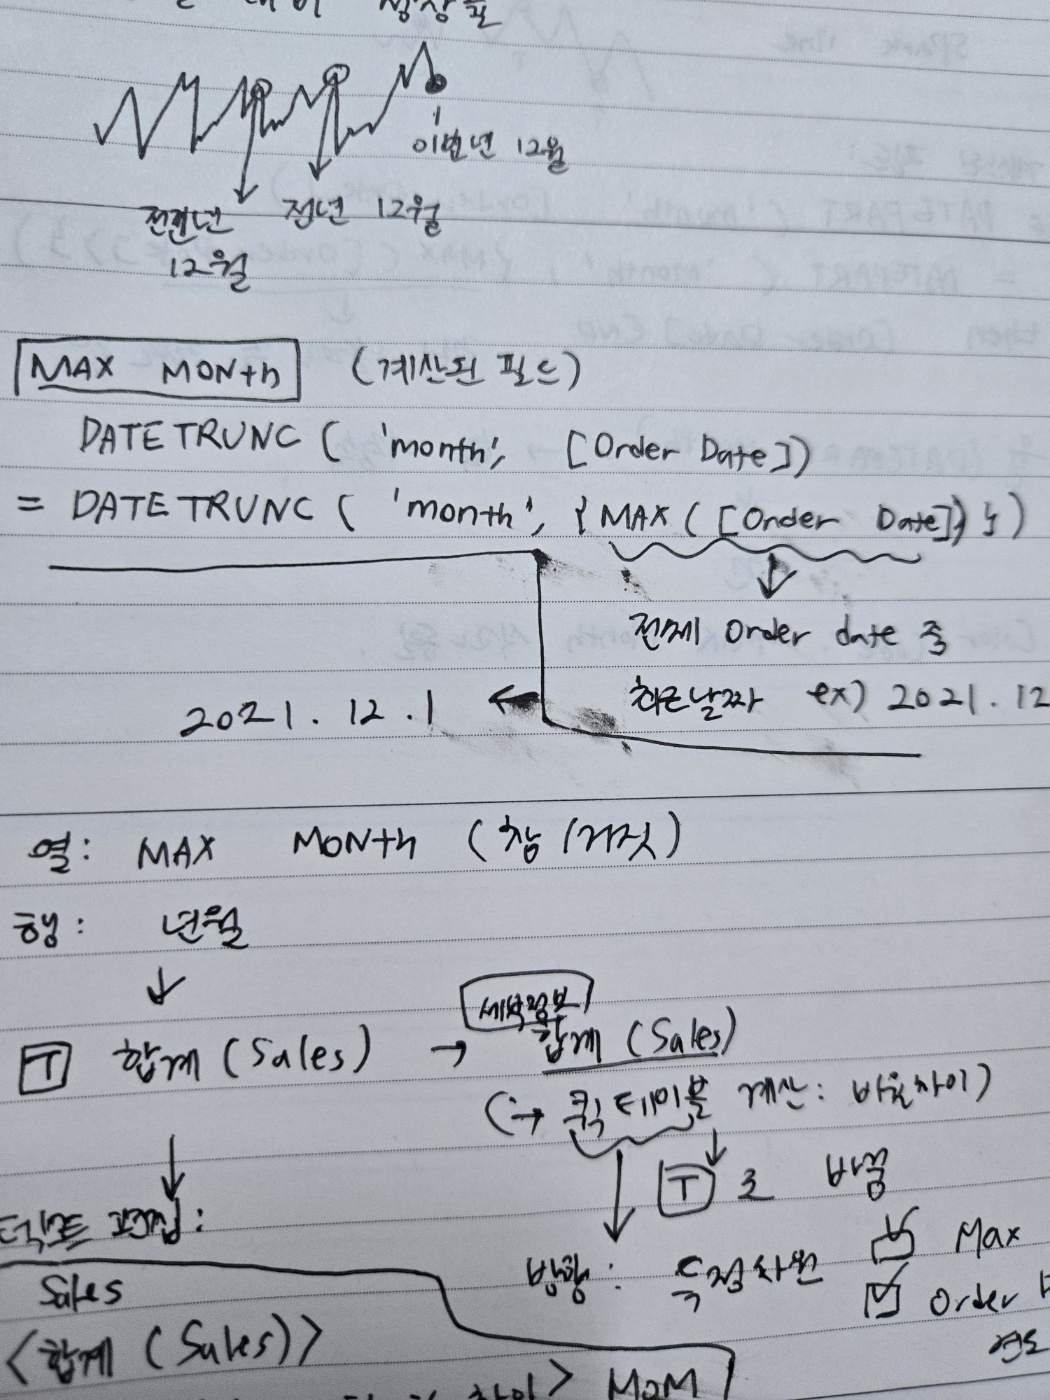 대비 성장률
이번년 12월
전전년 전년 12월
12월
MAX MONth (계산된 필드)
DATETRUNC ( 'month', [Order Date])
= DATETRUNC ( 'month', {MAX ([Order Date])})
전체 order date 중
최근날짜 ex) 2021.12
2021.12.1
열: MAX MONth (참/거짓)
행: 년월
세부정보
T 합계 (Sales) → 합계 (Sales)
(→ 퀵테이블 계산: 비율차이)
T 로 바꿈
텍스트 편집:
방향: 특정차원 Max
Sales Order
<합계 (Sales)>
> MoM